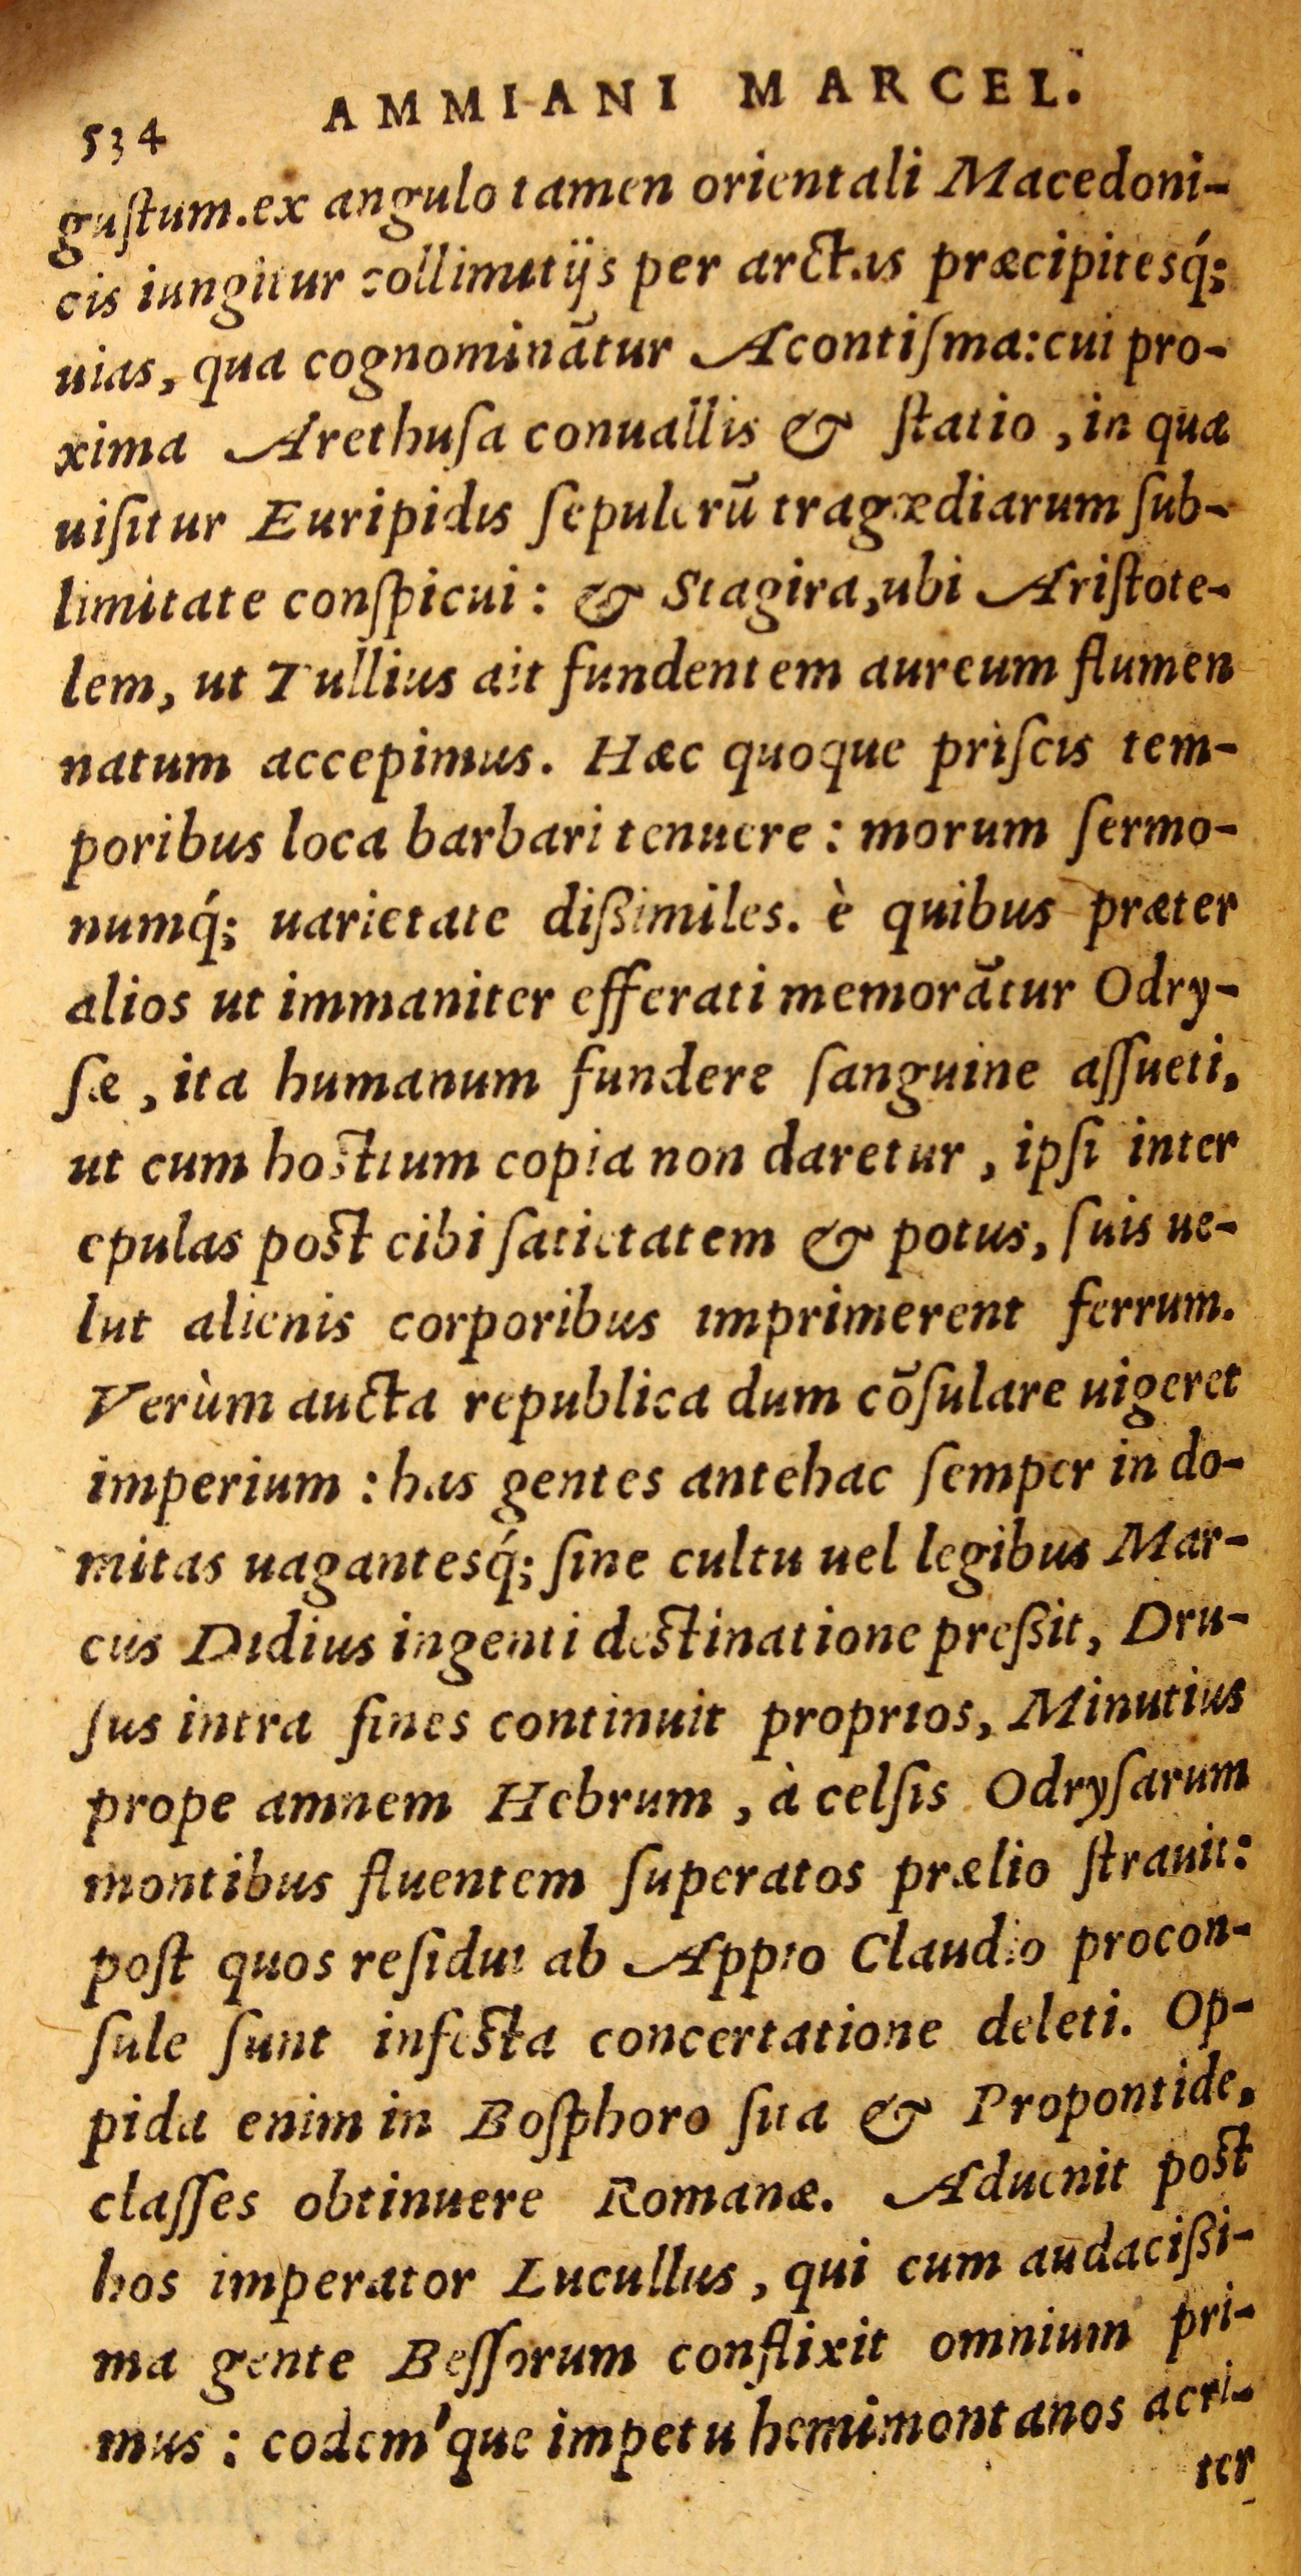 534 AMMIANI MARCEL.
guſtum.ex angulo tamen orientali Macedoni-
cis iungitur collimitijs per arctas præcipitesq́;
uias, qua cognominātur Acontiſma:cui pro-
xima Arethuſa conuallis & ſtatio, in qua
uiſitur Euripidis ſepulcrū tragœdiarum ſub-
limitate conſpicui: & Stagira,ubi Ariſtote-
lem, ut Tullius ait fundentem aureum flumen
natum accepimus. Hæc quoque priſcis tem-
poribus loca barbari tenuere: morum ſermo-
numq́; uarietate dißimiles. è quibus præter
alios ut immaniter efferati memorātur Odry-
ſæ, ita humanum fundere ſanguine aſſueti,
ut cum hostium copia non daretur, ipſi inter
epulas post cibi ſatietatem & potus, ſuis ue-
lut alienis corporibus imprimerent ferrum.
Verùm aucta republica dum cōſulare uigeret
imperium: has gentes antehac ſemper in do-
mitas uagantesq́; ſine cultu uel legibus Mar-
cus Didius ingenti destinatione preßit, Dru-
ſus intra fines continuit proprios, Minutius
prope amnem Hebrum, à celſis Odryſarum
montibus fluentem ſuperatos prælio ſtrauit:
poſt quos reſidui ab Appio Claudio procon-
ſule ſunt infesta concertatione deleti. Op-
pida enim in Boſphoro ſita & Propontide,
claſſes obtinuere Romanæ. Aduenit post
hos imperator Lucullus, qui cum audacißi-
ma gente Beſſorum conflixit omnium pri-
mus: eodem'que impetu hemimontanos acri-
ter